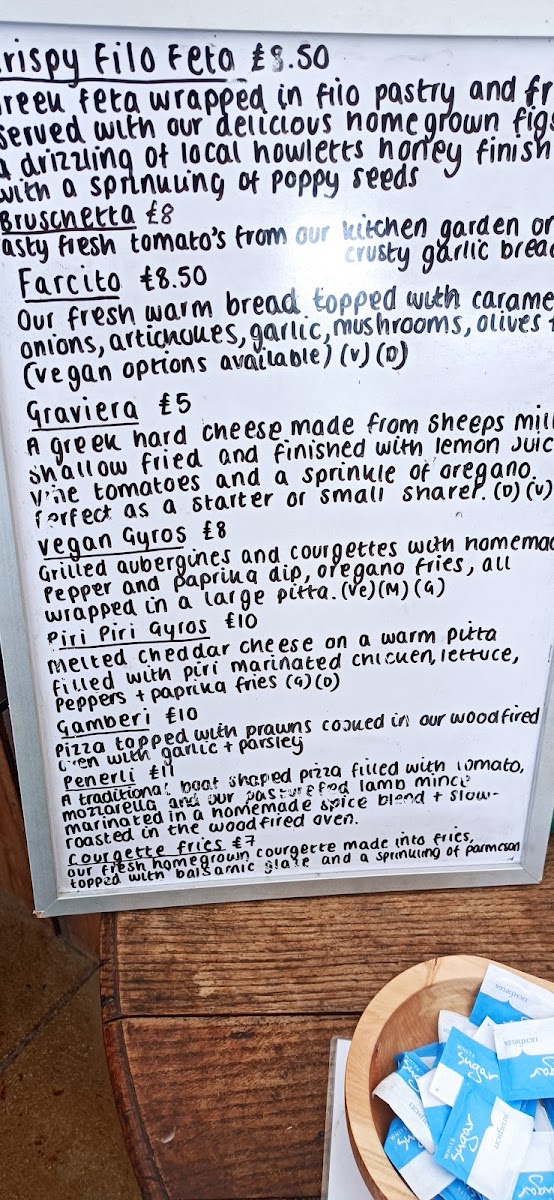 rispy Filo Feta £8.50
reek feta wrapped in filo pastry and fr
served with our delicious homegrown figs
a drizzling of local howletts honey finish
with a sprinkling of poppy seeds
Bruschetta £8
asty fresh tomato's from our kitchen garden or
crusty garlic bread
Farcito £8.50
Our fresh warm bread topped with carame
onions, artichokes, garlic, mushrooms, olives +
(vegan options available) (V) (D)
Graviera £5
A greek hard cheese made from sheeps mil
shallow fried and finished with lemon juic
vine tomatoes and a sprinkle of oregano.
Perfect as a starter or small sharer. (D) (V)
Vegan Gyros £8
Grilled aubergines and courgettes with homemad
Pepper and paprika dip, oregano fries, all
wrapped in a large pitta. (Ve) (M) (G)
Piri Piri Gyros £10
Melted Cheddar cheese on a warm pitta
filled with piri marinated chicken, lettuce,
Peppers + paprika fries (G) (D)
Gamberi £10
Pizza topped with prawns cooked in our woodfired
oven with garlic + parsley
Penerli £11
A traditional boat shaped pizza filled with tomato,
mozzarella and our pasture fed lamb mince
marinated in a homemade spice blend + slow-
roasted in the woodfired oven.
Courgette fries £7
our fresh homegrown courgette made into fries,
topped with balsamic glaze and a sprinkling of parmesan
sugar
sugar